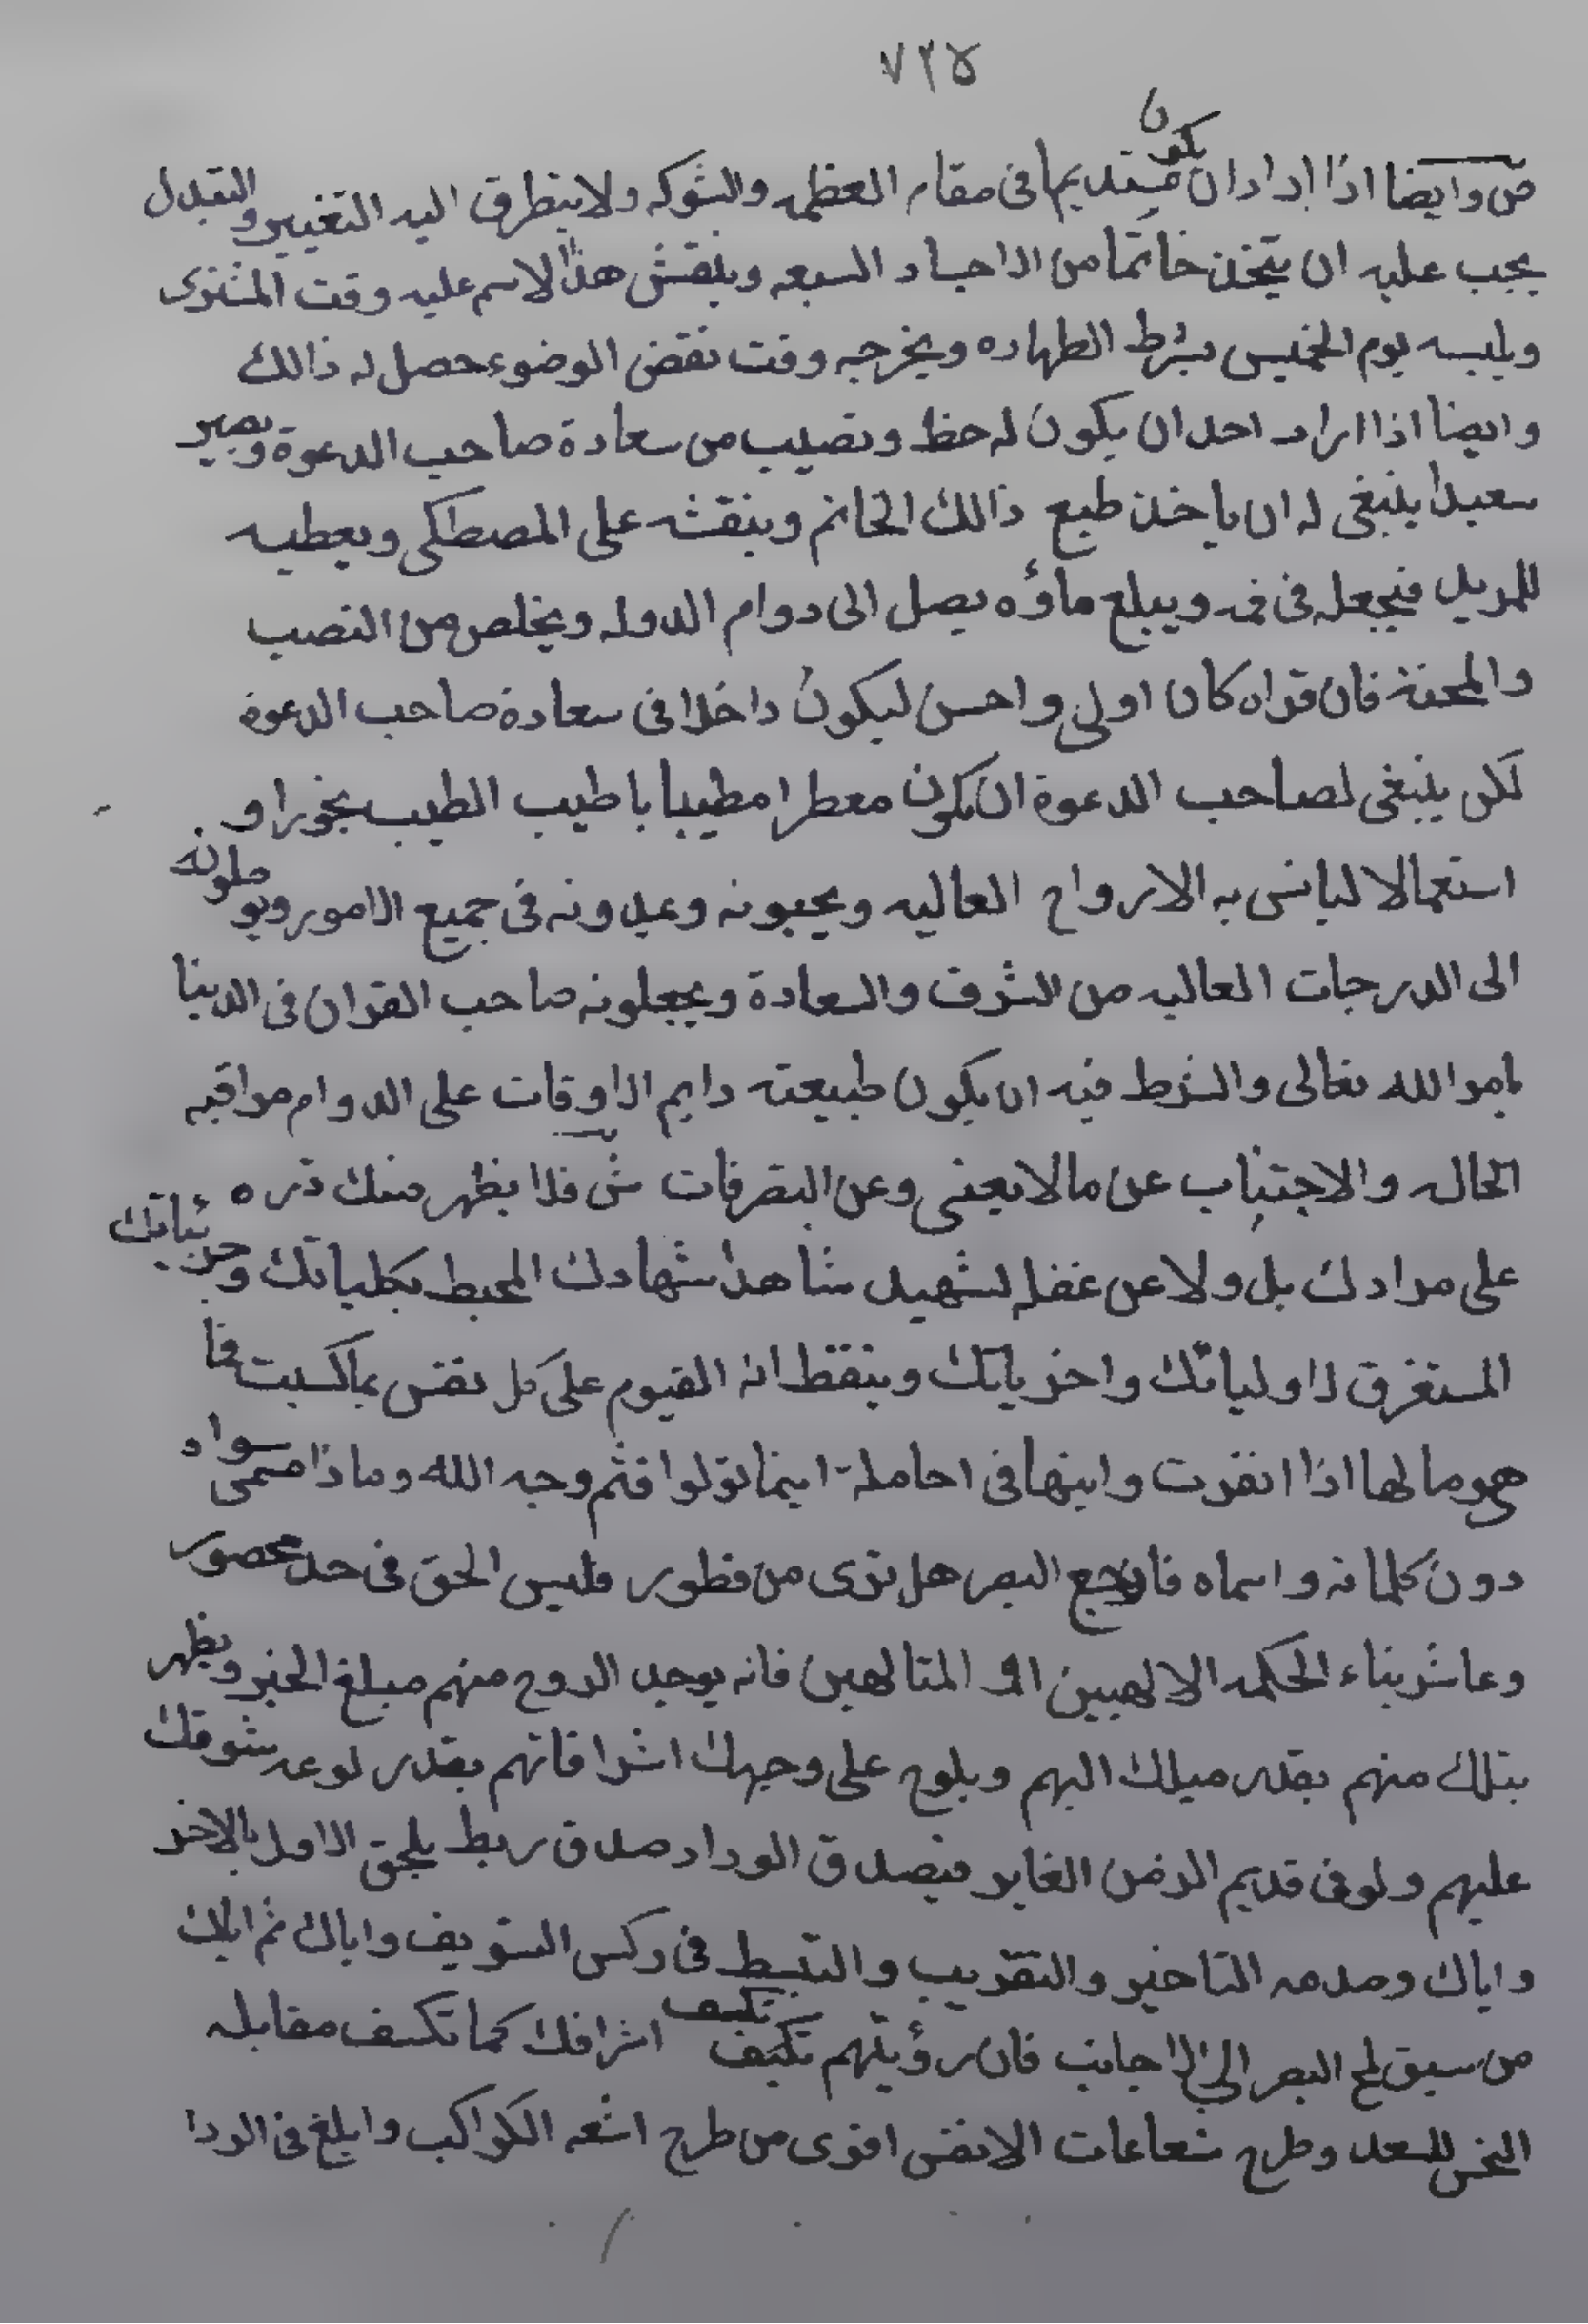 ٧٢٥
ص وايضا اذا اراد ان يكون مستديما فى مقام العظمه والشوكه ولا يتطرق اليه التغيير والتبدل
يجب عليه ان يتخذ خاتما من الاجساد السبعه وينقش هذا الاسم عليه وقت المشترى
ويلبسه يوم الخميس بشرط الطهاره ويخرجه وقت نقض الوضوء حصل له ذالك
وايضا اذا اراد احد ان يكون له حظ ونصيب من سعادة صاحب الدعوة ويصير
سعيدا ينبغى له ان ياخذ طبع ذالك الخاتم وينقشه على المصطكى ويعطيه
للمريد فيجعله فى فمه ويبلع ماؤه يصل الى دوام الدوله ويخلص من النصب
والمحنة فان قراه كان اولى واحسن ليكون داخلا فى سعادة صاحب الدعوة
لكن ينبغى لصاحب الدعوة ان يكون معطرا مطيبا باطيب الطيب بخورا و
استعمالا ليانس به الارواح العاليه ويحبونه ويمدونه فى جميع الامور ويوصلونه
الى الدرجات العاليه من الشرف والسعادة ويجعلونه صاحب القران فى الدنيا
بامر الله تعالى والشرط فيه ان يكون طبيعته دايم الاوقات على الدوام مراقبه
الحاله والاجتناب عن مالا يعنى وعن التصرفات فلا يظهر منك ذره
على مرادك بل ولا عن غفله لشهيد شاهدا شهادك المحيط بكلياتك وجزئياتك
المستغرق لاولياتك واخرياتك ويتقظ انه القيوم على كل نفس بما كسبت فما
هو ما لها اذا انفرت وابنها فى احامله اينما تولوا فثم وجه الله وماذا مسمى سواه
دون كلماته واسماه فارجع البصر هل ترى من فطور فليس الحق فى حد محصور
وعاشر بناء الحكمه الالهيين المتالهين فانه يوجد الروح منهم مبلغ الخبر ويظهر
بتلك منهم بقدر ميلك اليهم ويلوح على وجهك اشراقاتهم بقدر لوعه شوقك
عليهم ولو فى قديم الزمن الغابر فيصدق الوداد صدق ربط يلحق الاول بالاخر
واياك وصدمه التاخير والتقريب والتبسط فى ركس التسويف واياك ثم اياك
من سبق لمح البصر الى الاجانب فان رؤيتهم تكسف تكسف اشراقك كما تكسف مقابله
النحس للسعد وطرح شعاعات الانفس اقوى من طرح اشعه الكواكب وابلغ فى الردا